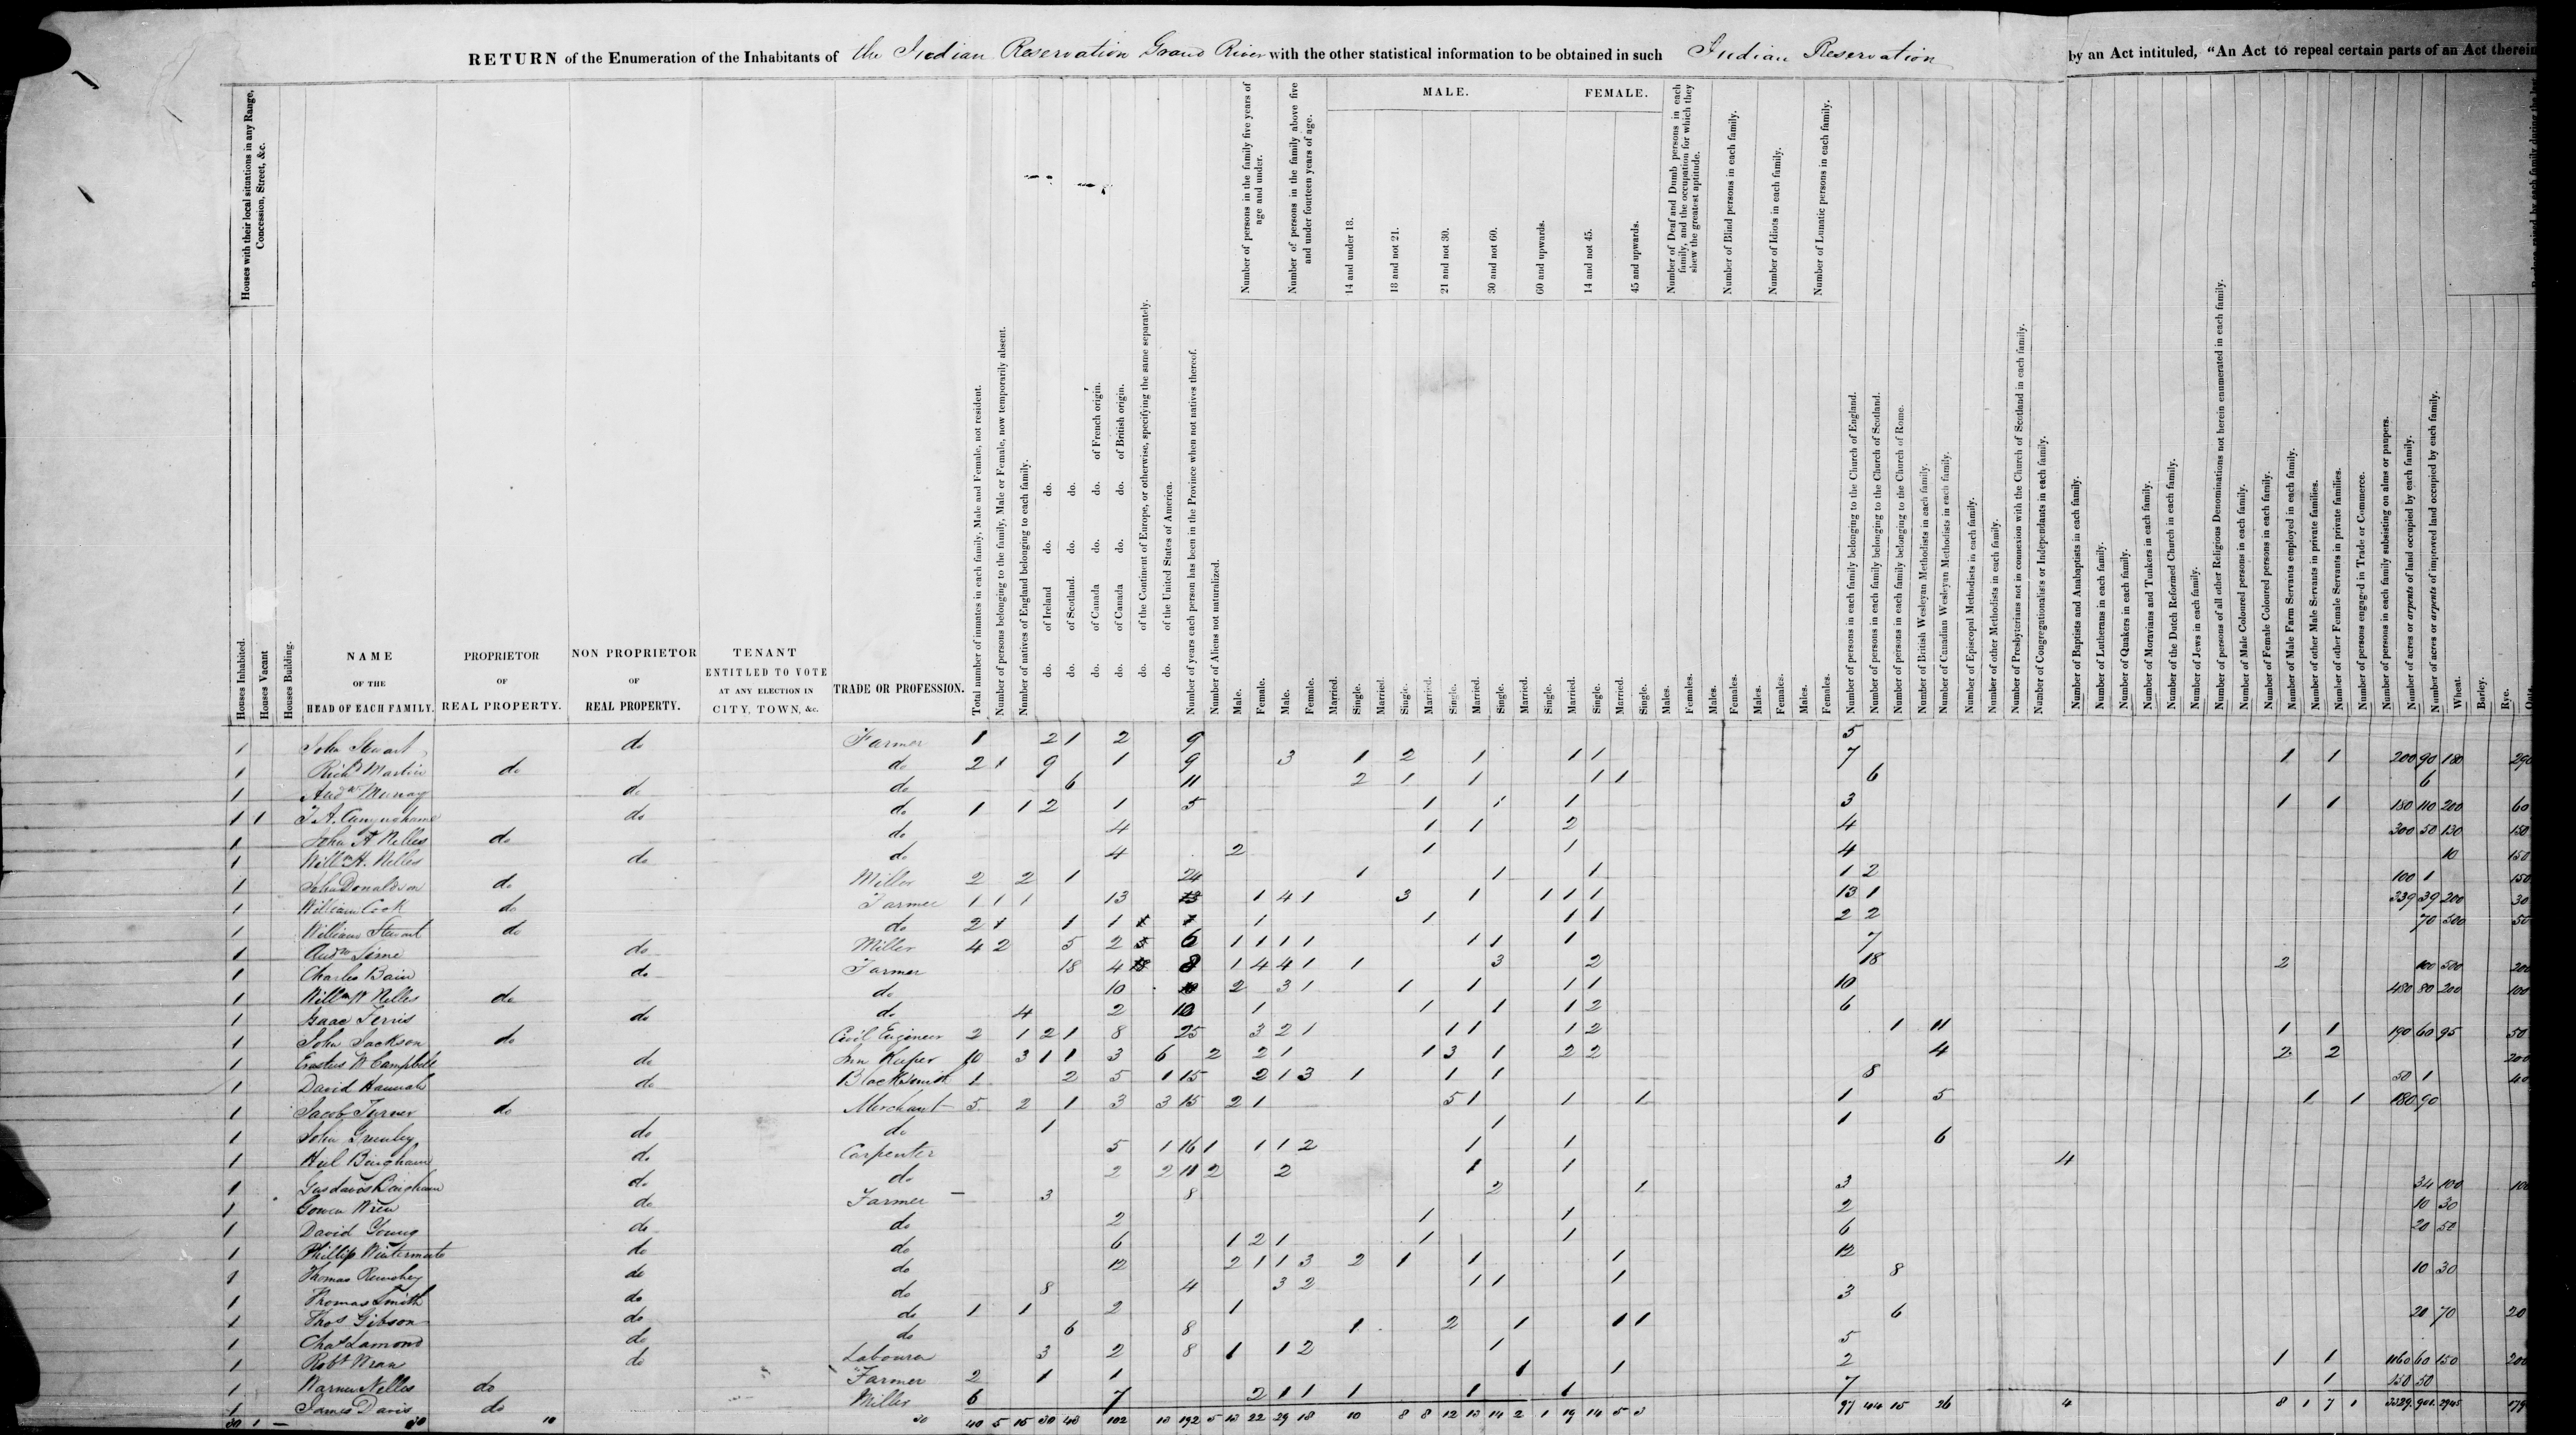 RETURN of the Enumeration of the Inhabitants of the Indian Reservation Grand River with the other statistical information to be obtained in such Indian Reservation by an Act intituled, "An Act to repeal certain parts of an Act therein
Houses with their local situations in any Range, Concession, Street, &c.
Houses Inhabited.
Houses Vacant
Houses Building.
NAME OF THE HEAD OF EACH FAMILY.
PROPRIETOR OF REAL PROPERTY.
NON PROPRIETOR OF REAL PROPERTY.
TENANT ENTITLED TO VOTE AT ANY ELECTION IN CITY, TOWN, &c.
TRADE OR PROFESSION.
Total number of inmates in each family, Male and Female, not resident.
Number of persons belonging to the family, Male or Female, now temporarily absent.
Number of natives of England belonging to each family.
do. of Ireland do. do.
do. of Scotland. do. do.
do. of Canada do. do. of French origin.
do. of Canada do. do. of British origin.
do. of the Continent of Europe, or otherwise, specifying the same separately.
do. of the United States of America.
Number of years each person has been in the Province when not natives thereof.
Number of Aliens not naturalized.
Number of persons in the family five years of age and under.
Male.
Female.
Number of persons in the family above five and under fourteen years of age.
Male.
Female.
MALE.
14 and under 18.
Married.
Single.
18 and not 21.
Married.
Single.
21 and not 30.
Married.
Single.
30 and not 60.
Married.
Single.
60 and upwards.
Married.
Single.
FEMALE.
14 and not 45.
Married.
Single.
45 and upwards.
Married.
Single.
Number of Deaf and Dumb persons in each family, and the occupation for which they shew the greatest aptitude.
Males.
Females.
Number of Blind persons in each family.
Males.
Females.
Number of Idiots in each family.
Males.
Females.
Number of Lunatic persons in each family.
Males.
Females.
Number of persons in each family belonging to the Church of England.
Number of persons in each family belonging to the Church of Scotland.
Number of persons in each family belonging to the Church of Rome.
Number of British Wesleyan Methodists in each family.
Number of Canadian Wesleyan Methodists in each family.
Number of Episcopal Methodists in each family
Number of other Methodists in each family.
Number of Presbyterians not in connexion with the Church of Scotland in each family.
Number of Congregationalists or Independants in each family.
Number of Baptists and Anabaptists in each family.
Number of Lutherans in each family.
Number of Quakers in each family.
Number of Moravians and Tunkers in each family.
Number of the Dutch Reformed Church in each family.
Number of Jews in each family.
Number of persons of all other Religious Denominations not herein enumerated in each family.
Number of Male Coloured persons in each family.
Number of Female Coloured persons in each family.
Number of Male Farm Servants employed in each family.
Number of other Male Servants in private families.
Number of other Female Servants in private families.
Number of persons engaged in Trade or Commerce.
Number of persons in each family subsisting on alms or paupers.
Number of acres or arpents of land occupied by each family.
Number of acres or arpents of improved land occupied by each family.
Wheat.
Barley.
Rye.
Oats
1 John Stewart do Farmer 1 2 1 2 9 5
1 Richd Martin do do 2 1 9 1 9 3 1 2 1 1 1 7 1 1 200 90 180 290
1 Andw Murray do do 6 11 2 1 1 1 1 6 6
1 1 do do 1 1 2 1 5 1 1 1 3 1 1 150 110 200 60
1 John A Nelles do do 4 1 1 2 4 300 50 130 150
1 Willm H. Nelles do do 4 2 1 1 4 10 150
1 John Donaldson do Miller 2 2 1 24 1 1 1 1 2 100 1 150
1 William Cook do Farmer 1 1 1 13 1 4 1 3 1 1 1 1 13 1 339 39 200 30
1 William Stewart do do 2 1 1 1 1 1 1 1 2 2 70 300 50
1 do Miller 4 2 5 2 6 1 1 1 1 1 1 1 7
1 Charles Bain do Farmer 18 4 8 1 4 4 1 1 3 2 18 2 100 500 200
1 Willm W Nelles do do 10 2 3 1 1 1 1 1 10 480 80 200 100
1 Isaac Ferris do do 4 2 10 1 1 1 1 2 6
1 John Jackson do Civil Engineer 2 1 2 1 8 25 3 2 1 1 1 1 2 1 11 1 1 190 60 95 50
1 Erastus W Campbell do Inn Keeper 10 3 1 1 3 6 2 2 1 1 3 1 2 2 4 2 2 200
1 David Hannah do Blacksmith 1 2 5 1 15 2 1 3 1 1 1 8 50 1 40
1 Jacob Turner do Merchant 5 2 1 3 3 15 2 1 5 1 1 1 1 5 1 1 180 90
1 John do do 1 1 1
1 Bingham do Carpenter 5 1 16 1 1 1 2 1 1 6
1 do do 2 2 11 2 2 1 1 4
1 Gowen Wren do Farmer 3 8 2 1 3 34 100 100
1 David Young do do 2 1 1 2 10 30
1 Phillip Wintermute do do 6 1 2 1 1 1 6 20 50
1 Thomas do do 12 2 1 1 3 2 1 1 1 12
1 Thomas Smith do do 8 4 3 2 1 1 1 8 10 30
1 Thos Gibson do do 1 1 2 1 3
1 Chas Lamond do do 6 8 1 2 1 1 1 6 20 70 20
1 Robt Wran do Labourer 3 2 8 1 1 2 1 5
1 Warner Nelles do Farmer 2 1 1 1 1 2 1 1 1160 60 150 200
1 James Davis do Miller 6 7 2 1 1 1 1 1 7 1 150 50
30 1 — 30 10 30 40 5 15 30 43 102 13 192 5 13 22 29 18 10 8 8 12 13 14 2 1 19 14 5 3 97 44 15 26 4 8 1 7 1 3329 901 2945 179